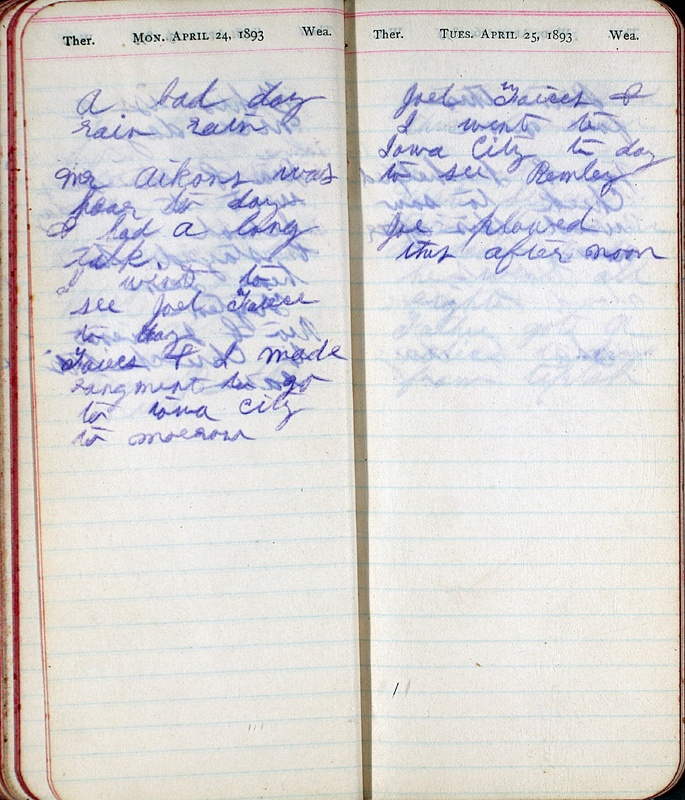 Ther. MON. APRIL 24, 1893 Wea.
A bad day
rain rain
Mr Aikons was
hear to day
I had a long
talk.
I went to
see Joel Faires
to day
Faires & I made
rangment to go
to iowa City
to morrow
Ther. TUES. APRIL 25, 1893 Wea.
Joel Faires &
I went to
Iowa City to day
to see Remley
Joe plowed
this after noon